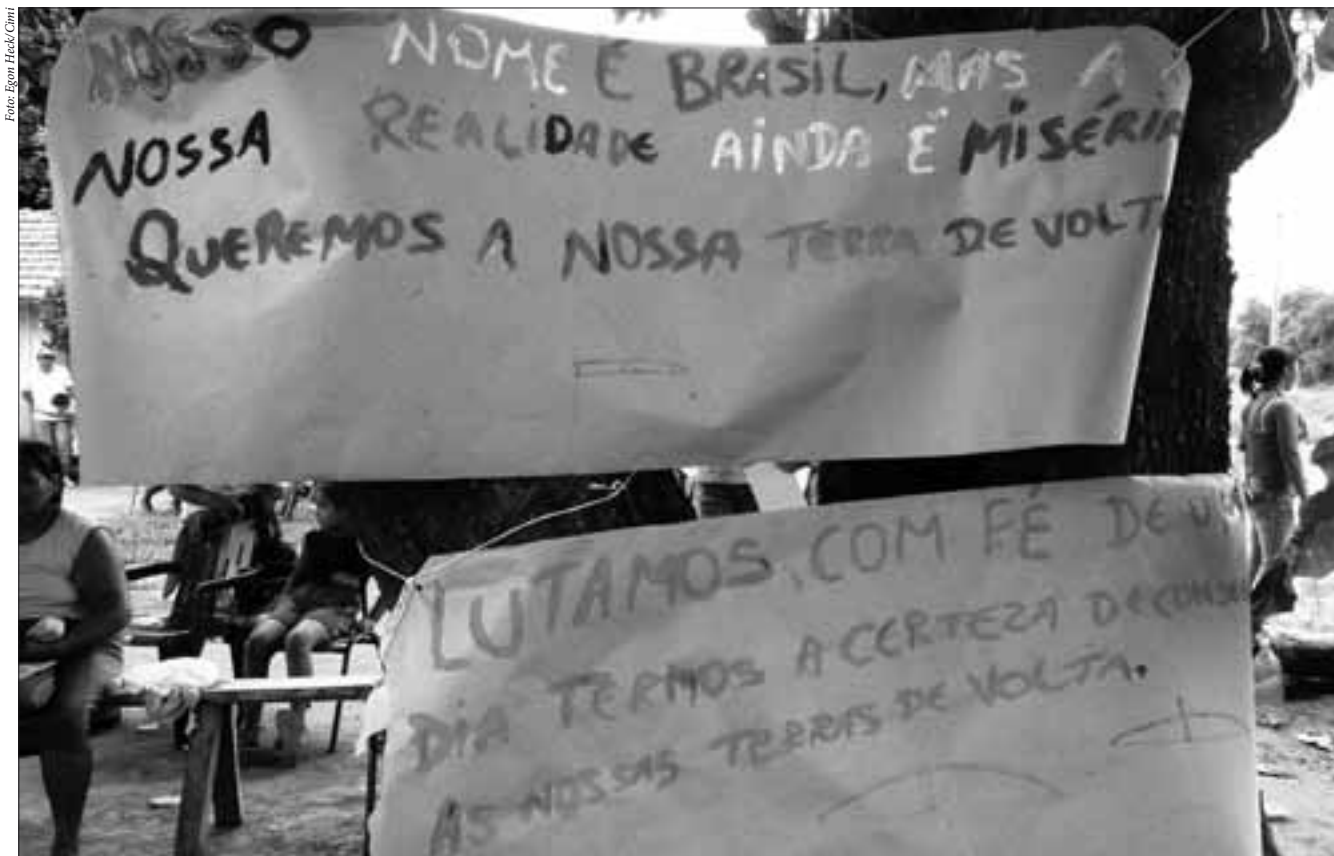 Foto: Egon Heck/Cimi
NOSSO NOME E BRASIL, MAS A
NOSSA REALIDADE AINDA É MISÉRIA
QUEREMOS A NOSSA TERRA DE VOLT
LUTAMOS, COM FÉ DE
DIA TERMOS A CERTEZA DE
AS NOSSAS TERRAS DE VOLTA.